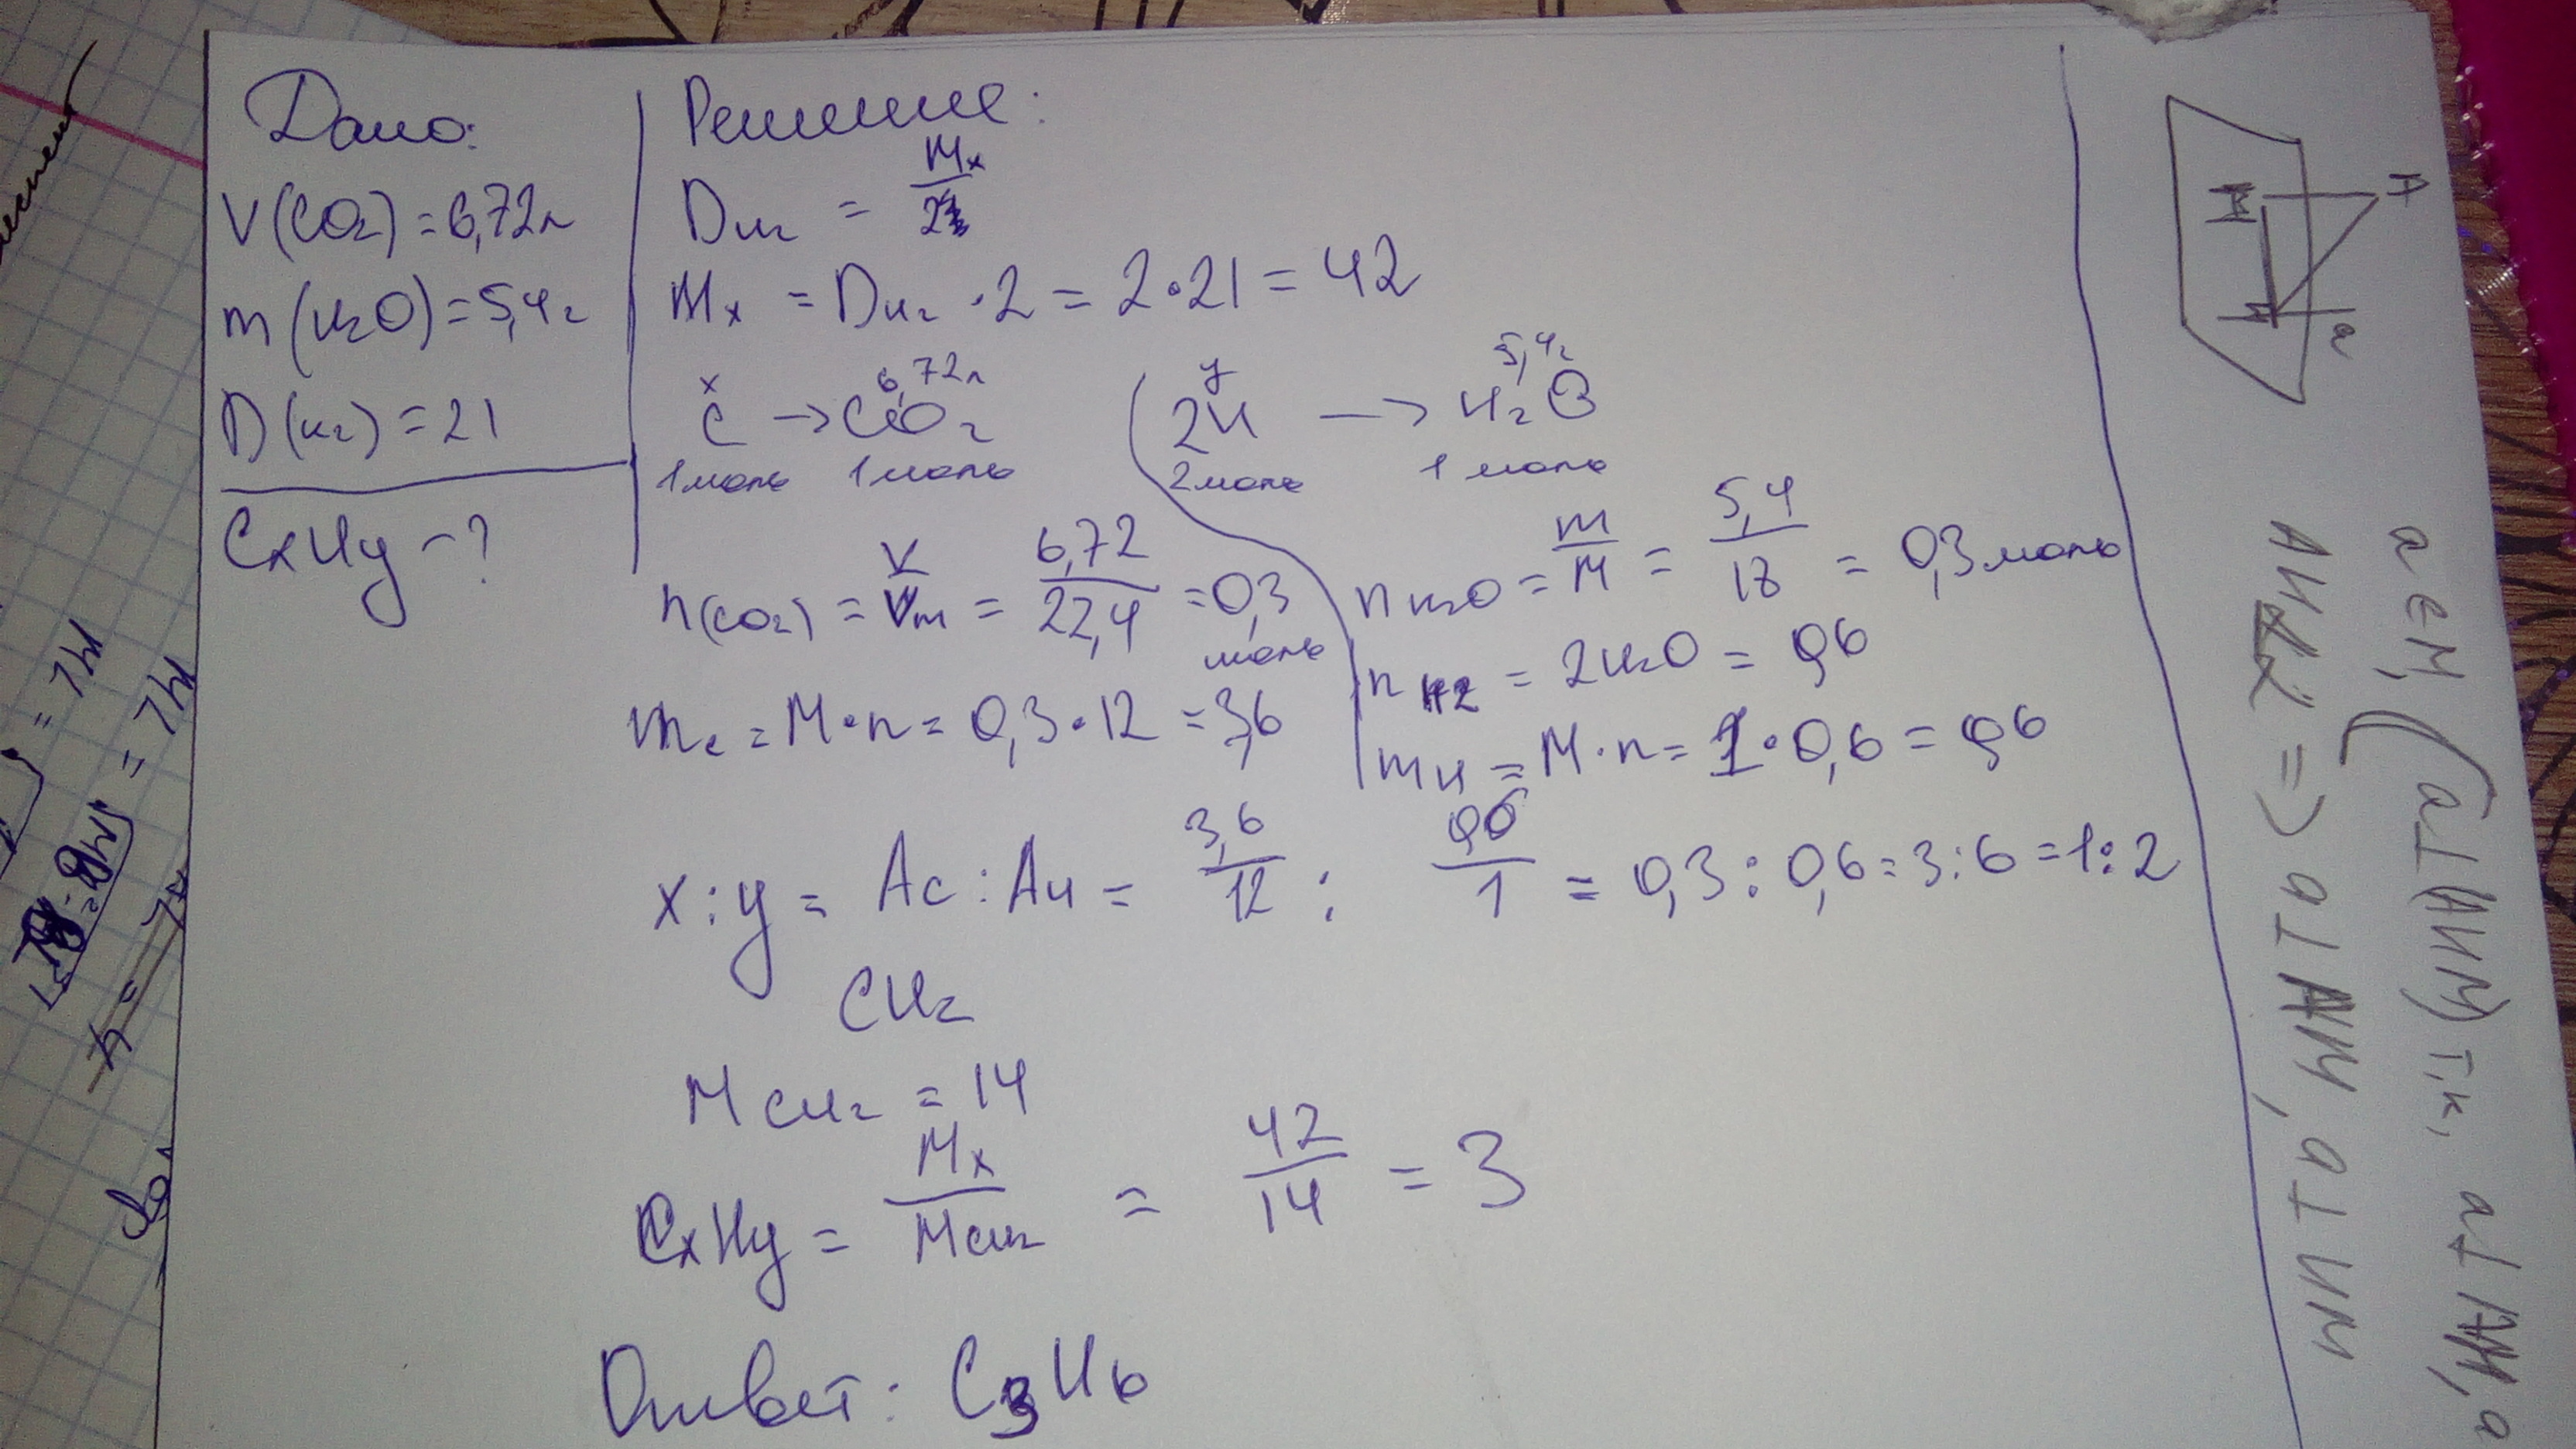 Дано:
V(CO₂) = 6,72л
m(H₂O) = 5,4г
D(H₂) = 21
CxHy - ?
Решение:
DH₂ = Mx/2
Mx = DH₂ · 2 = 2 · 21 = 42
x 6,72л
C → CO₂
1 моль 1 моль
y 5,4г
2H → H₂O
2 моль 1 моль
n(CO₂) = V/Vm = 6,72/22,4 = 0,3
моль
mc = M · n = 0,3 · 12 = 3,6
nH₂O = m/M = 5,4/18 = 0,3 моль
nH2 = 2H₂O = 0,6
mH = M · n = 1 · 0,6 = 0,6
x : y = Ac : AH = 3,6/12 : 0,6/1 = 0,3 : 0,6 = 3 : 6 = 1 : 2
CH₂
MCH₂ = 14
CxHy = Mx/MCH₂ = 42/14 = 3
Ответ: C3H6
a
a ∈ M, (a⊥(AHM) т.к, a⊥AM, a
=> a⊥AM, a⊥HM
= 7H
= 7H